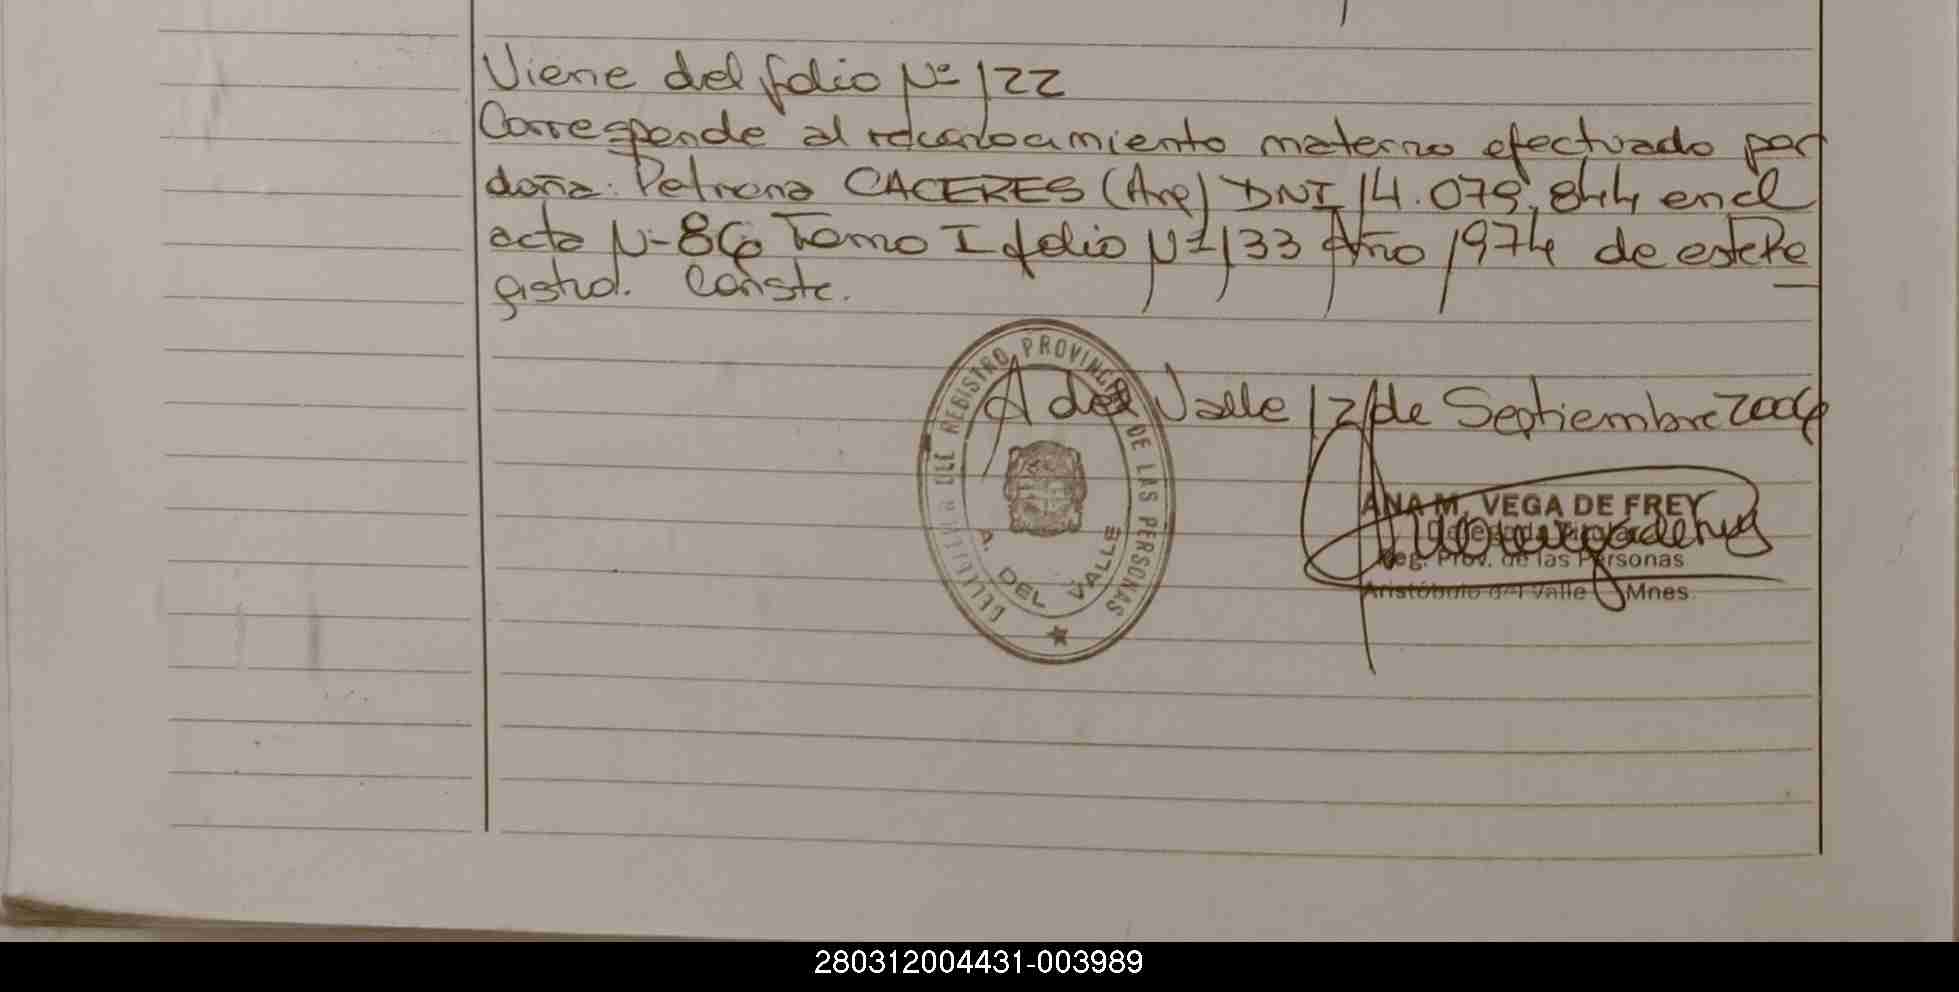 Viene del folio Nº 122
Corresponde al reconocimiento materno efectuado por
doña: Petrona CACERES (Arg) DNI 14.079.844 en el
acta Nº 86 Tomo I folio Nº 133 Año 1974 de este Re
gistro. Conste.
A del Valle 12 de Septiembre 2006
REGISTRO PROVINCIAL DE LAS PERSONAS
A. DEL VALLE
ANA M. VEGA DE FREY
Reg. Prov. de las Personas
Aristóbulo del Valle Mnes.
280312004431-003989